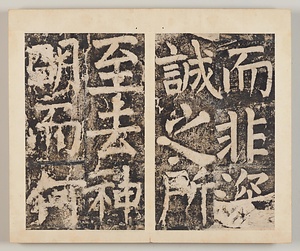 而非姿
誠之所
至去神
明而何